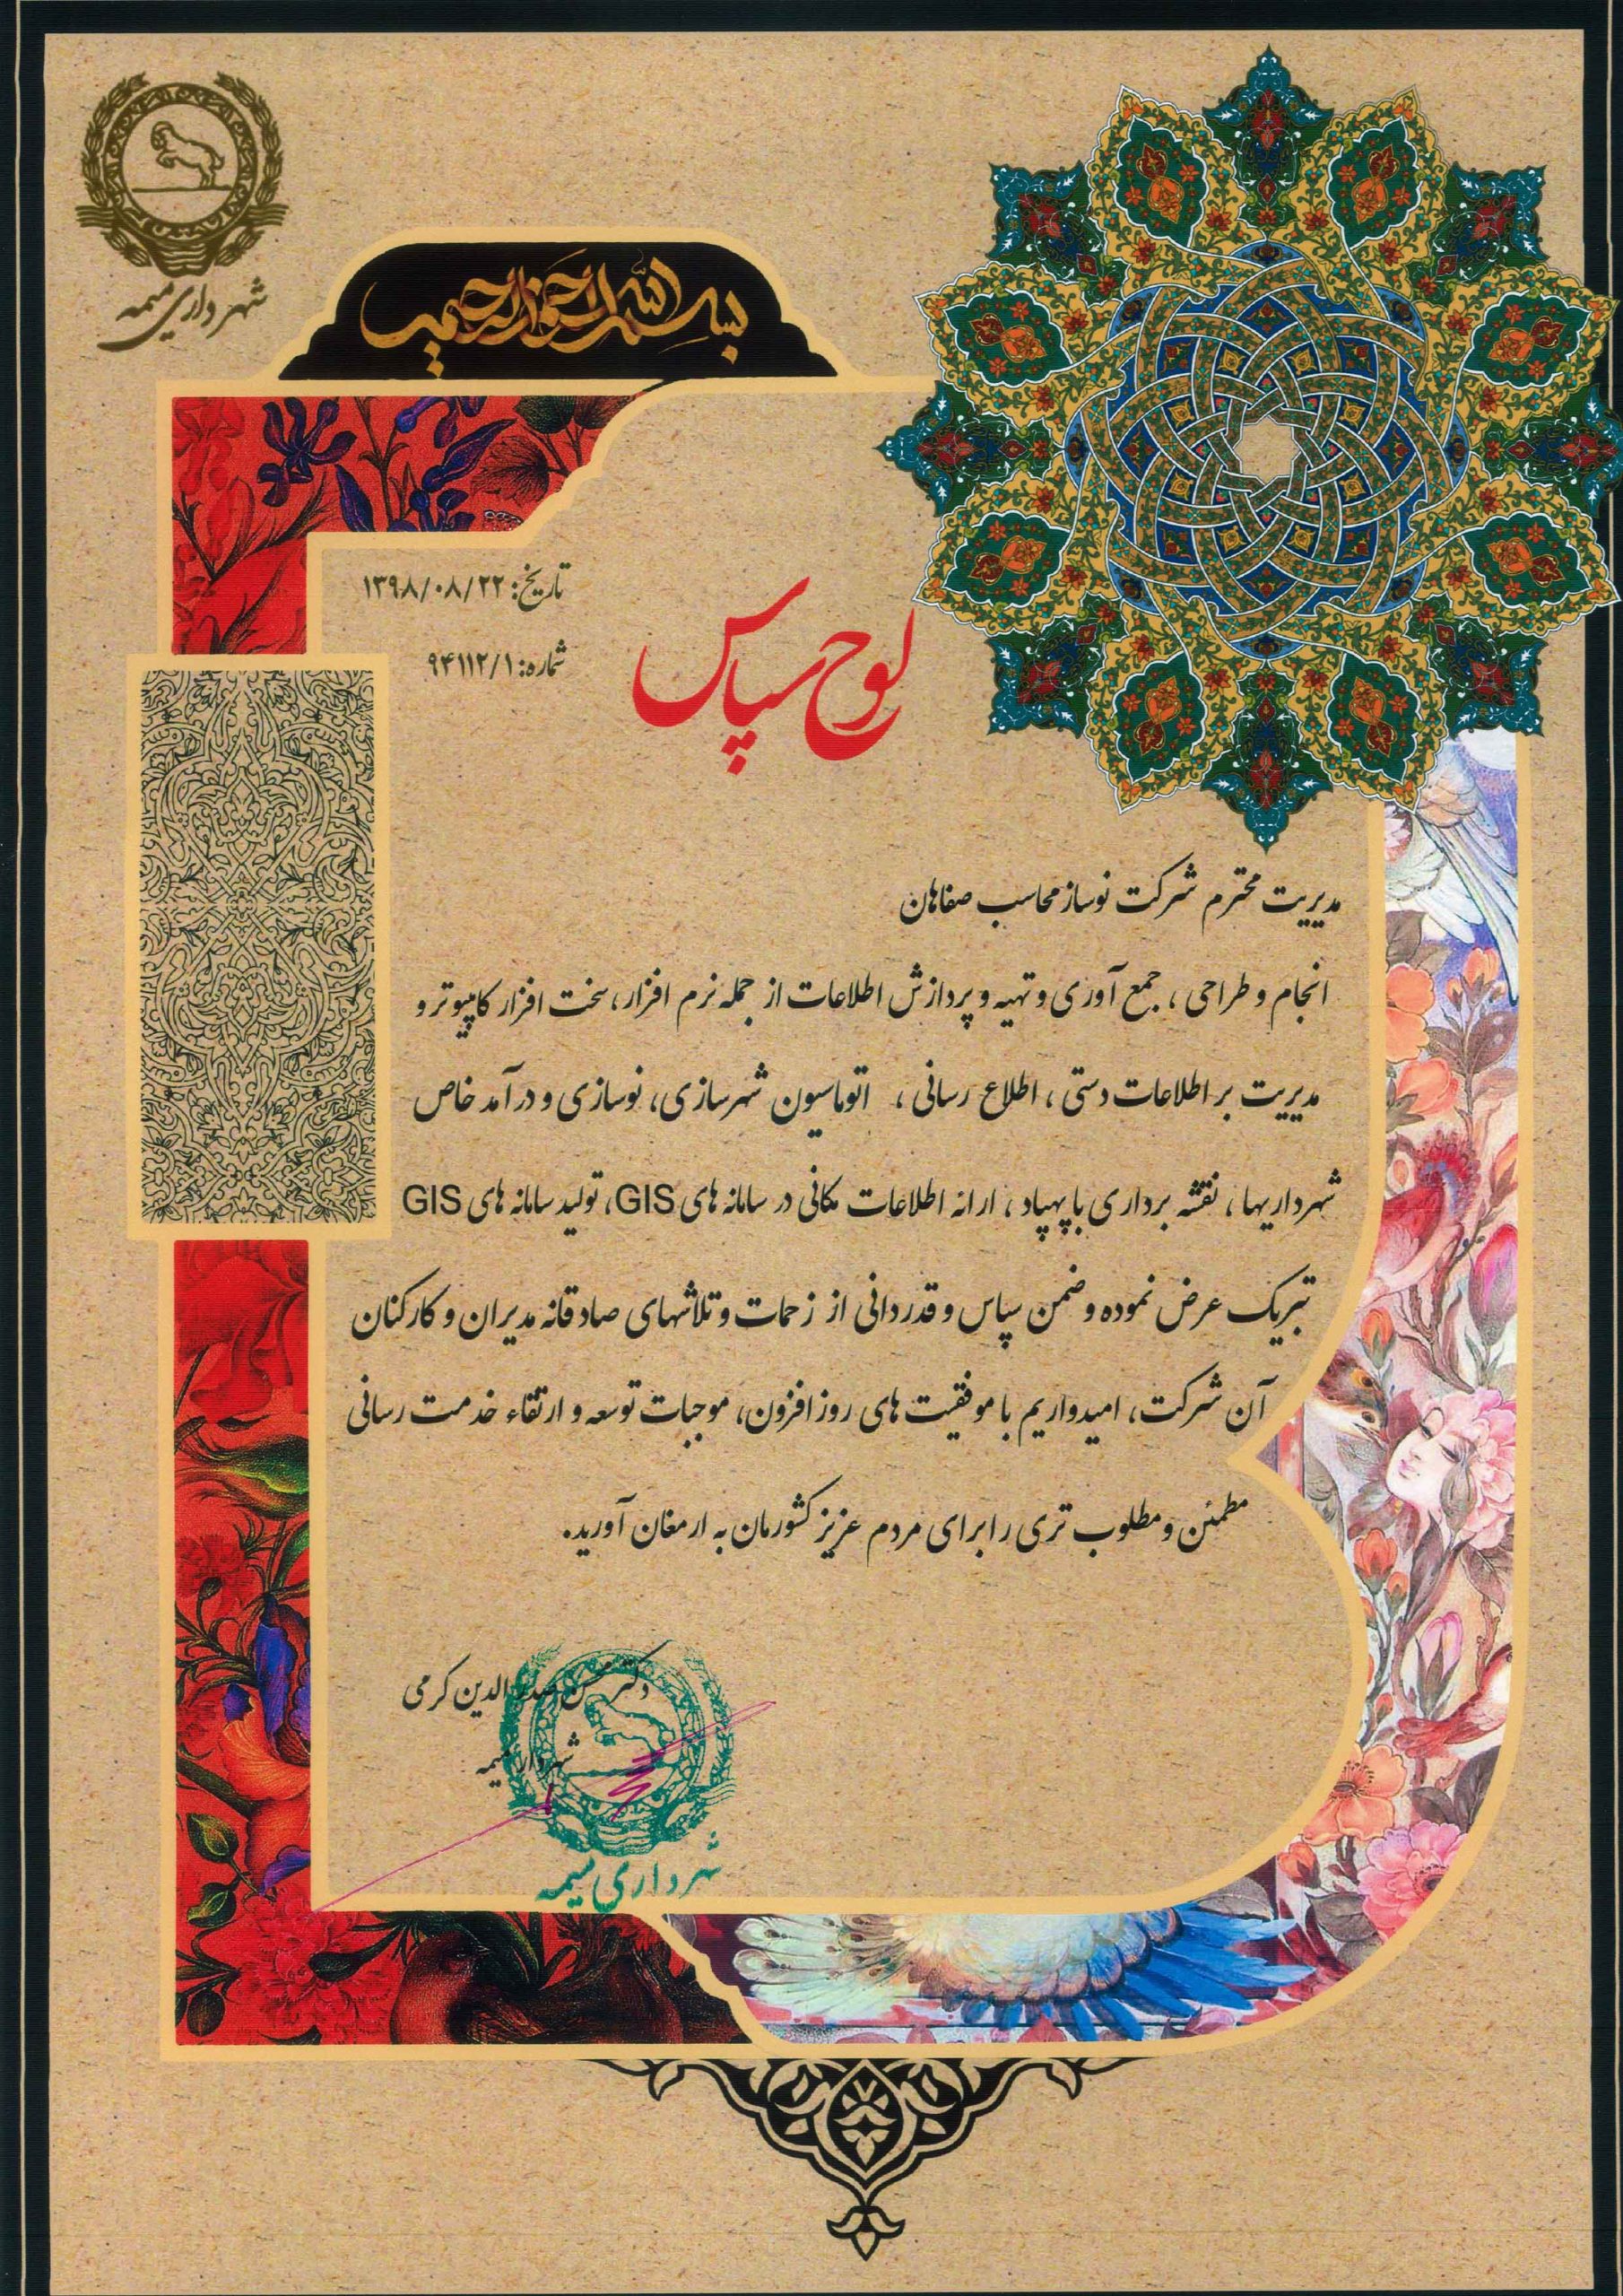 شهرداری میمه
بسم الله الرحمن الرحیم
تاریخ: ۱۳۹۸/۰۸/۲۲
شماره: ۹۴۱۱۲/۱
لوح سپاس
مدیریت محترم شرکت نوساز محاسب صفاهان
انجام و طراحی ، جمع آوری و تهیه و پردازش اطلاعات از جمله نرم افزار، سخت افزار کامپیوتر و
مدیریت بر اطلاعات دستی ، اطلاع رسانی ، اتوماسیون شهرسازی، نوسازی و درآمد خاص
شهرداریها ، نقشه برداری با پهپاد ، ارائه اطلاعات مکانی در سامانه های GIS، تولید سامانه های GIS
تبریک عرض نموده و ضمن سپاس و قدردانی از زحمات و تلاشهای صادقانه مدیران و کارکنان
آن شرکت، امیدواریم با موفقیت های روز افزون، موجبات توسعه و ارتقاء خدمت رسانی
مطمئن و مطلوب تری را برای مردم عزیز کشورمان به ارمغان آورید.
دکتر محسن صدرالدین کرمی
شهردار میمه
شهرداری میمه